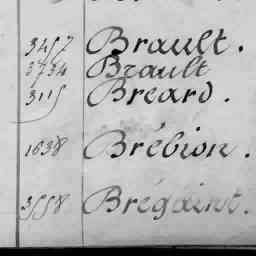 3457 Brault.
3734 Brault
3115 Breard.
1638 Brébion.
3558 Brégaint.